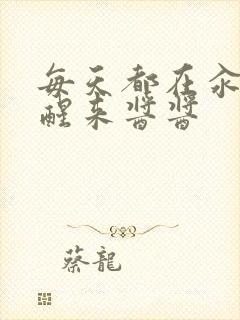 每天都在汆
醒来酱酱
蔡龍